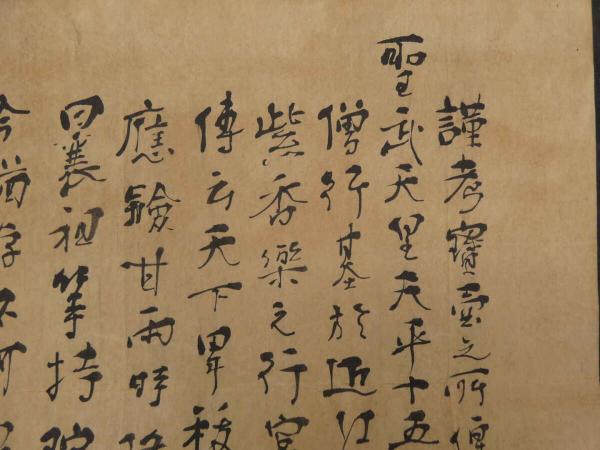 謹考寶壷之所傳
聖武天皇天平十五
僧行基於近江
紫香樂之行宮
傳云天下旱疫
應驗甘雨時
曩祖等持院
今尚